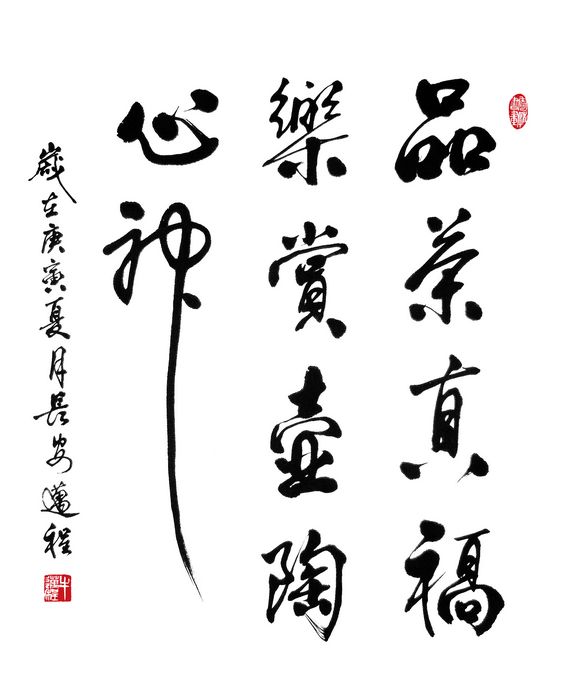 品茶真福
樂賞壺陶
心神
歲在庚寅夏月長安邁程